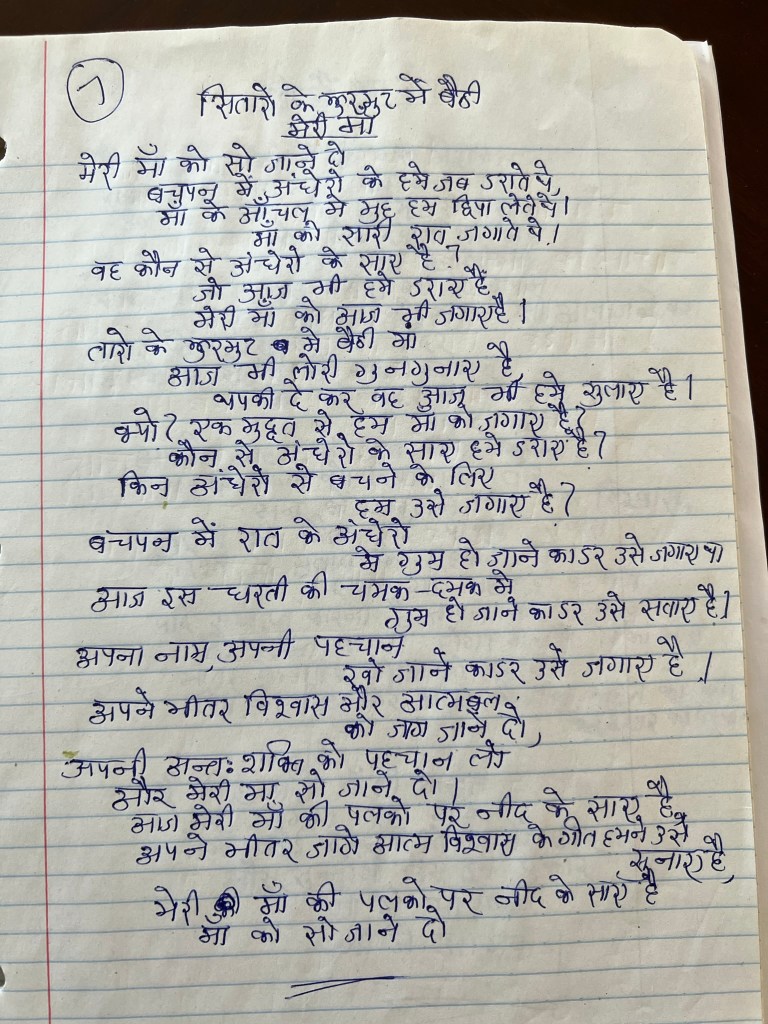 1
सितारो के झुरमुट में बैठी
मेरी माँ
मेरी माँ को सो जाने दो
बचपन में अंधेरो के हमे जब डराते थे,
माँ के आँचल में मुह हम छिपा लेते थे।
माँ को सारी रात जगाते थे।
वह कौन से अंधेरो के साए है?
जो आज भी हमे डराए हैं,
मेरी माँ को आज भी जगाए है।
तारो के झुरमुट में बैठी माँ
आज भी लोरी गुनगुनाए है,
थपकी दे कर वह आज भी हमे सुलाए है।
क्यो? एक मुद्दत से हम माँ को जगाए है?
कौन से अंधेरो के साए हमे डराए है?
किन अंधेरो से बचने के लिए
हम उसे जगाए है?
बचपन में रात के अंधेरो
मे गुम हो जाने का डर उसे जगाए था
आज इस धरती की चमक-दमक में
गुम हो जाने का डर उसे सताए है।
अपना नाम, अपनी पहचान
खो जाने का डर उसे जगाए है।
अपने भीतर विश्वास और आत्मबल
को जग जाने दो,
अपनी अन्तः शक्ति को पहचान लो
और मेरी माँ सो जाने दो।
आज मेरी माँ की पलको पर नींद के साए है,
अपने भीतर जागे आत्म विश्वास के गीत हमने उसे
सुनाए है,
मेरी माँ की पलको पर नींद के साए है
माँ को सो जाने दो